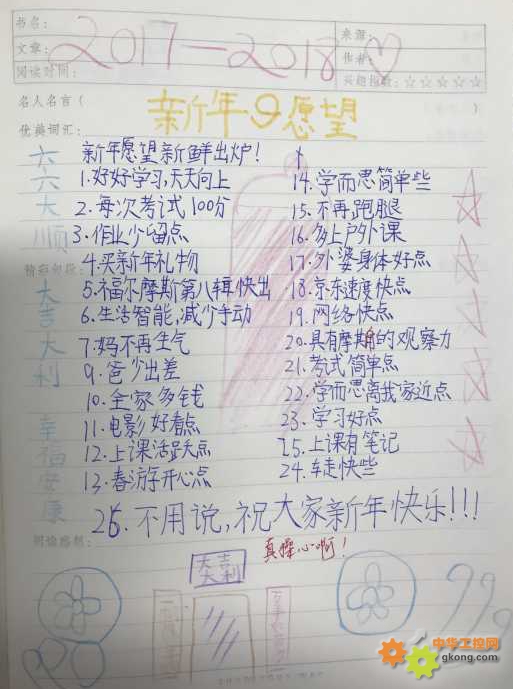 书名：
来源：
文章：
作者：
阅读时间：
兴趣指数：☆☆☆☆☆
2017—2018
名人名言（ ）
优美词汇：
新年9愿望
六六大顺
大吉大利
幸福安康
新年愿望新鲜出炉！
1.好好学习,天天向上
2.每次考试100分
3.作业少留点
4.买新年礼物
精彩句段：
5.福尔摩斯第八辑快出
6.生活智能,减少手动
7.妈不再生气
9.爸少出差
10.全家多钱
11.电影好看点
12.上课活跃点
13.春游开心点
14.学而思简单些
15.不再跑腿
16.多上户外课
17.外婆身体好点
18.京东速度快点
19.网络快点
20.具有摩斯的观察力
21.考试简单点
22.学而思离我家近点
23.学习好点
25.上课有笔记
24.车走快些
26.不用说,祝大家新年快乐!!!
阅读感想：
真操心啊！
大吉
大利
999
中华工控网
gkong.com